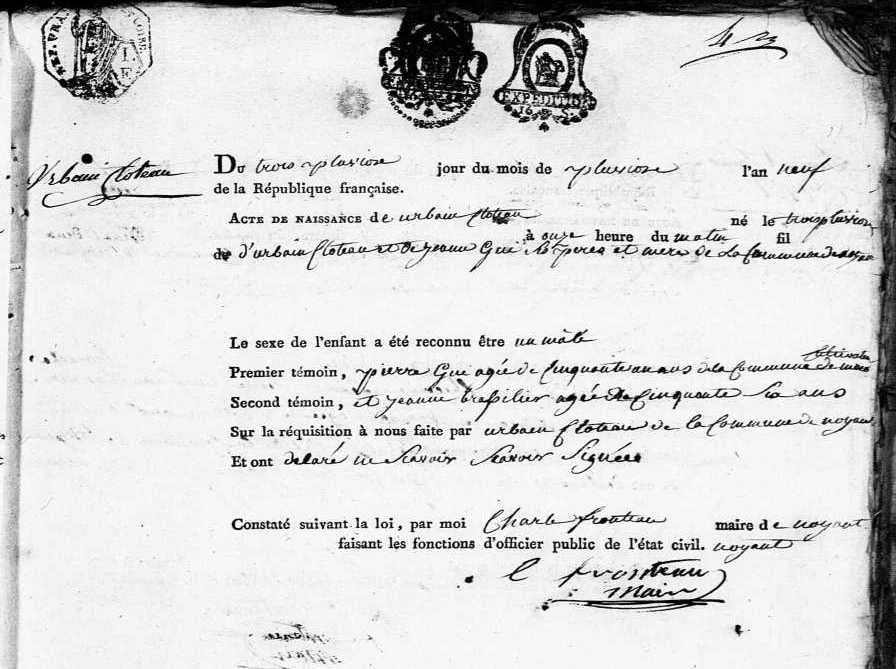 REP. FRA
EXPEDITION
Urbain Cloteau
DU trois pluviose jour du mois de pluviose l'an neuf
de la République française.
ACTE DE NAISSANCE de urbain Cloteau né le trois pluviose
à onze heure du matin fil
de d'urbain Cloteau et de jeanne Gué pere et mere de La Commune de
Le sexe de l'enfant a été reconnu être un mâle
Premier témoin, pierre Gué agée de Cinquante ans de la Commune de
Second témoin, et jeanne brasilier agée de Cinquante Six ans
Sur la réquisition à nous faite par urbain Cloteau de la Commune de noyant
Et ont delaré ne Scavoir Scavoir Signée
Constaté suivant la loi, par moi Charle fronteau maire de noyant
faisant les fonctions d'officier public de l'état civil. noyant
C fronteau
Maire